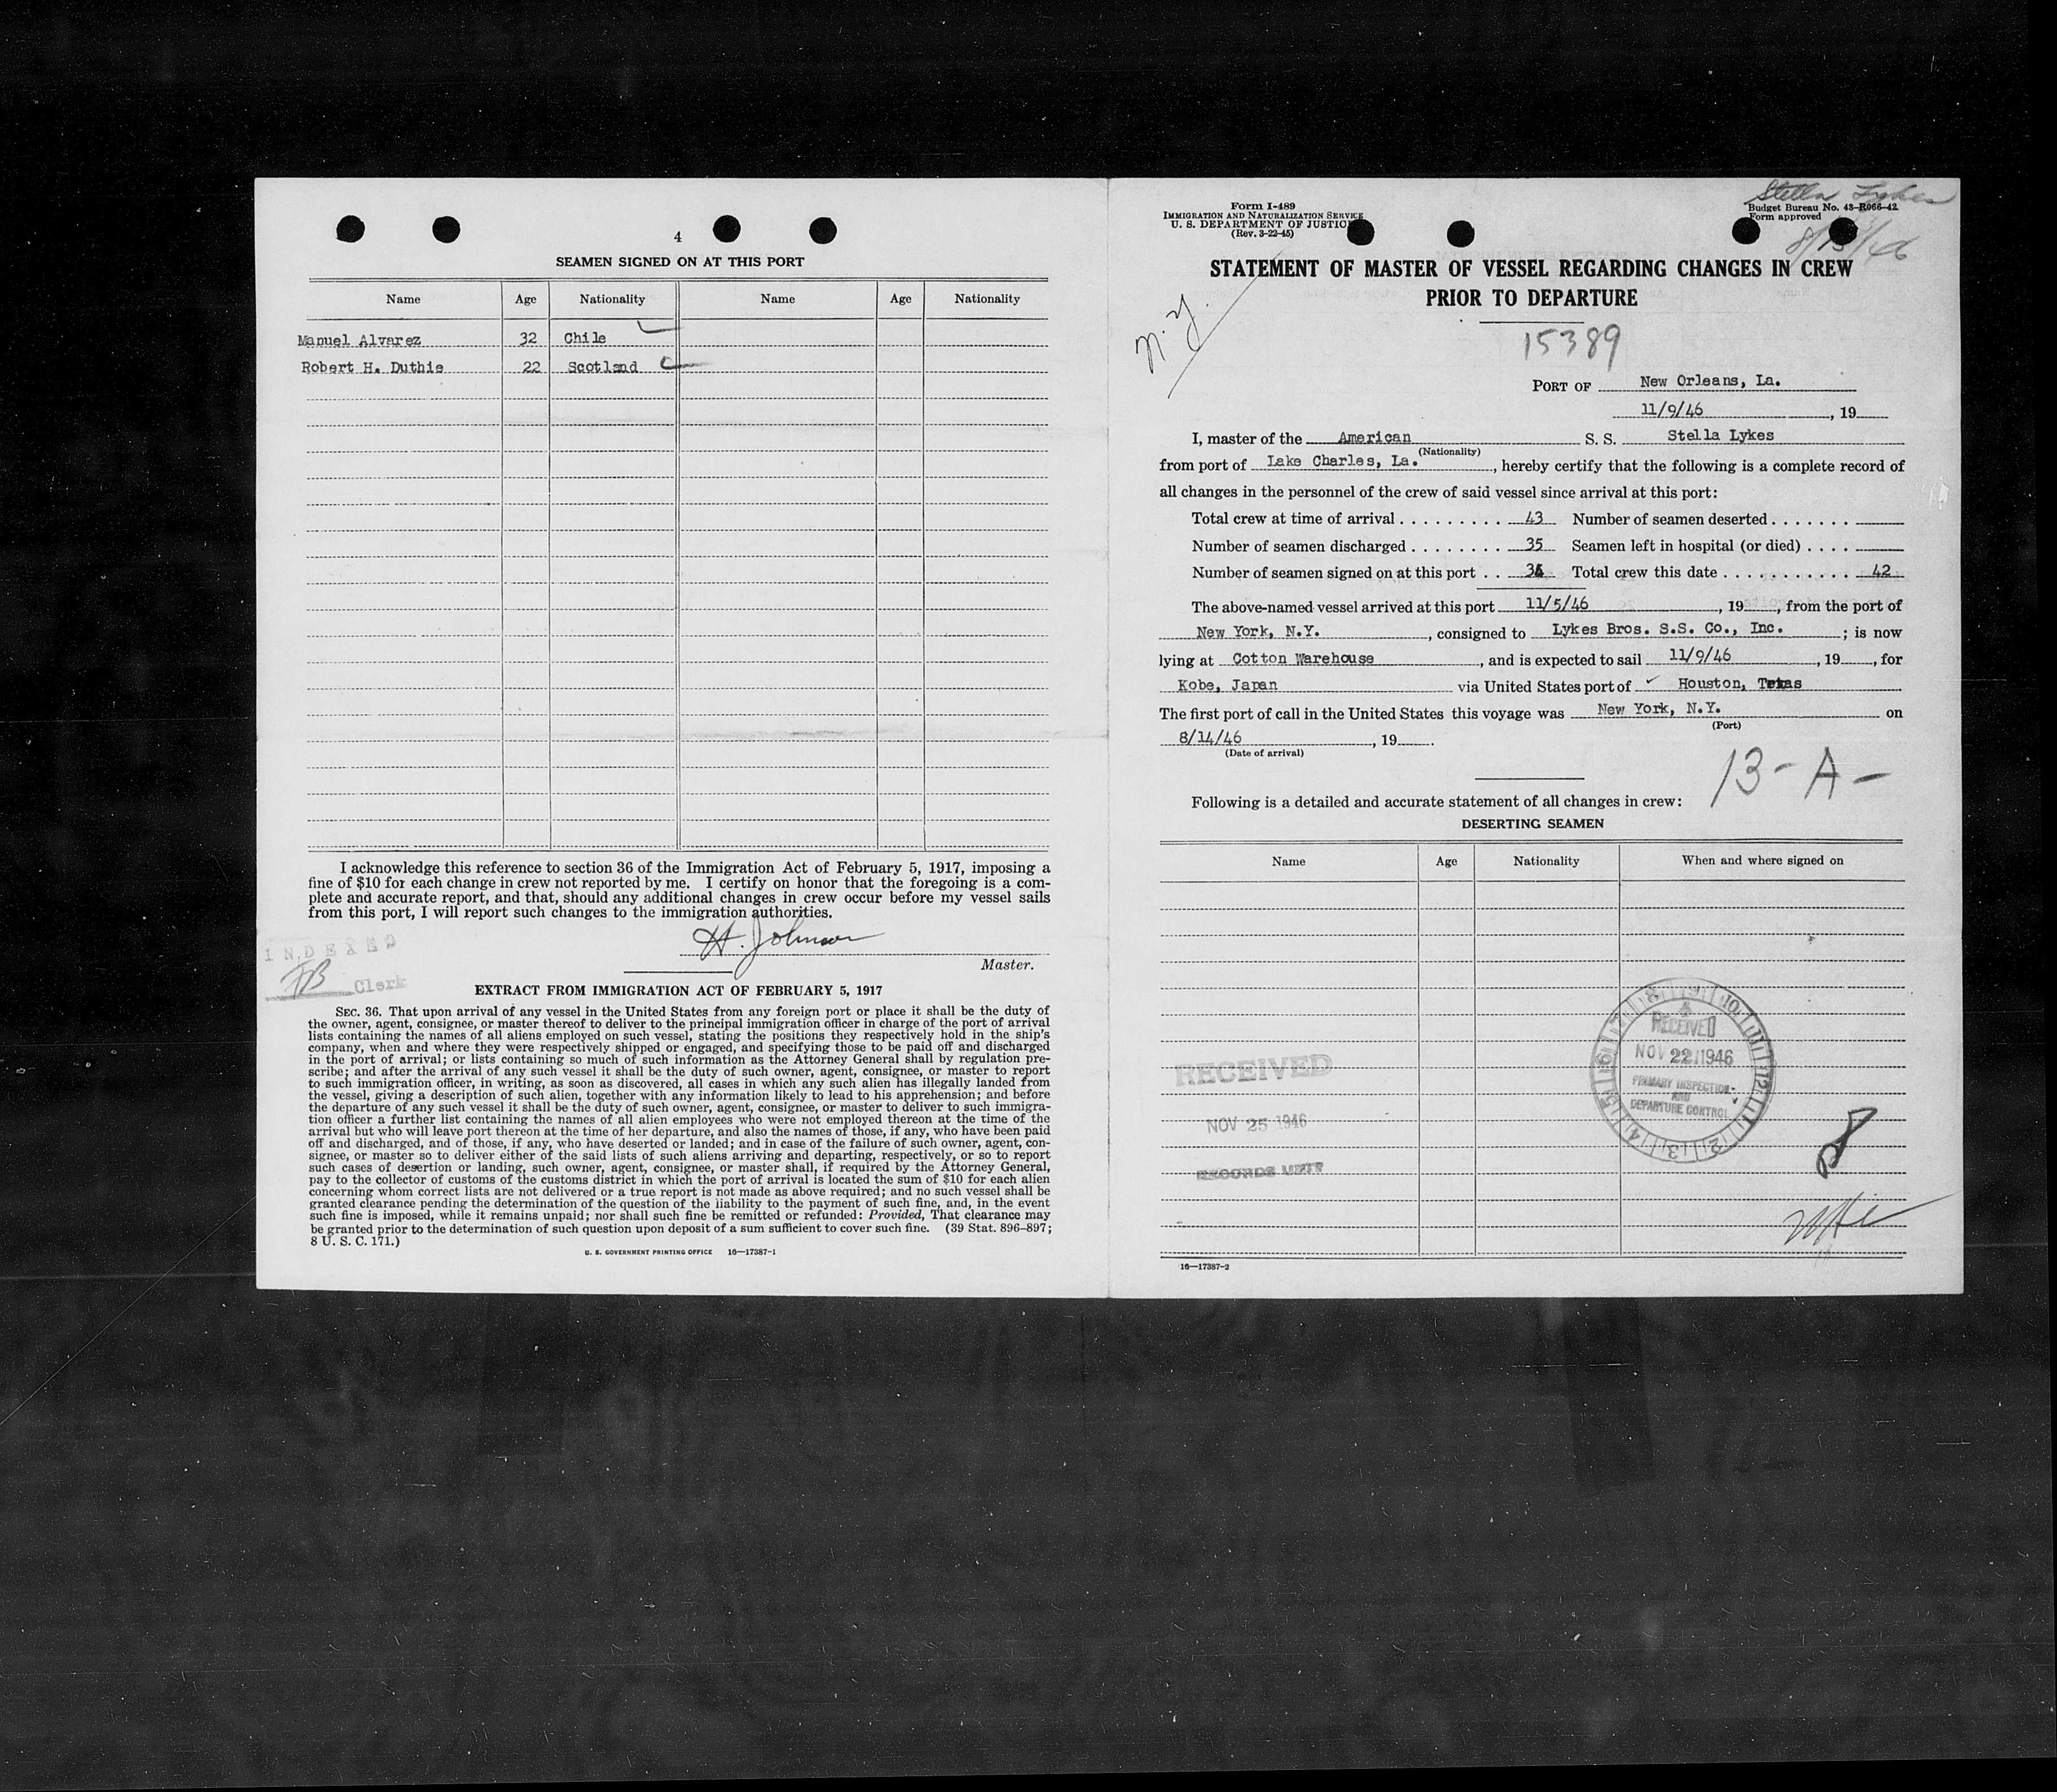 4
SEAMEN SIGNED ON AT THIS PORT
Name Age Nationality Name Age Nationality
Manuel Alvarez 32 Chile
Robert H. Duthie 22 Scotland
I acknowledge this reference to section 36 of the Immigration Act of February 5, 1917, imposing a
fine of $10 for each change in crew not reported by me. I certify on honor that the foregoing is a com-
plete and accurate report, and that, should any additional changes in crew occur before my vessel sails
from this port, I will report such changes to the immigration authorities.
H. Johnson
Master.
INDEXED
Clerk
EXTRACT FROM IMMIGRATION ACT OF FEBRUARY 5, 1917
SEC. 36. That upon arrival of any vessel in the United States from any foreign port or place it shall be the duty of
the owner, agent, consignee, or master thereof to deliver to the principal immigration officer in charge of the port of arrival
lists containing the names of all aliens employed on such vessel, stating the positions they respectively hold in the ship's
company, when and where they were respectively shipped or engaged, and specifying those to be paid off and discharged
in the port of arrival; or lists containing so much of such information as the Attorney General shall by regulation pre-
scribe; and after the arrival of any such vessel it shall be the duty of such owner, agent, consignee, or master to report
to such immigration officer, in writing, as soon as discovered, all cases in which any such alien has illegally landed from
the vessel, giving a description of such alien, together with any information likely to lead to his apprehension; and before
the departure of any such vessel it shall be the duty of such owner, agent, consignee, or master to deliver to such immigra-
tion officer a further list containing the names of all alien employees who were not employed thereon at the time of the
arrival but who will leave port thereon at the time of her departure, and also the names of those, if any, who have been paid
off and discharged, and of those, if any, who have deserted or landed; and in case of the failure of such owner, agent, con-
signee, or master so to deliver either of the said lists of such aliens arriving and departing, respectively, or so to report
such cases of desertion or landing, such owner, agent, consignee, or master shall, if required by the Attorney General,
pay to the collector of customs of the customs district in which the port of arrival is located the sum of $10 for each alien
concerning whom correct lists are not delivered or a true report is not made as above required; and no such vessel shall be
granted clearance pending the determination of the question of the liability to the payment of such fine, and, in the event
such fine is imposed, while it remains unpaid; nor shall such fine be remitted or refunded: Provided, That clearance may
be granted prior to the determination of such question upon deposit of a sum sufficient to cover such fine. (39 Stat. 896-897;
8 U. S. C. 171.)
U. S. GOVERNMENT PRINTING OFFICE 16—17387-1
Stella Lykes
Form I-489
IMMIGRATION AND NATURALIZATION SERVICE
U. S. DEPARTMENT OF JUSTICE
(Rev. 3-22-45)
Budget Bureau No. 43-R066-42
Form approved
8/15/46
STATEMENT OF MASTER OF VESSEL REGARDING CHANGES IN CREW
PRIOR TO DEPARTURE
N.Y.
15389
PORT OF New Orleans, La.
11/9/46, 19
I, master of the American S. S. Stella Lykes
(Nationality)
from port of Lake Charles, La., hereby certify that the following is a complete record of
all changes in the personnel of the crew of said vessel since arrival at this port:
Total crew at time of arrival . . . . . . . . . 43 Number of seamen deserted . . . . . . .
Number of seamen discharged . . . . . . . . 35 Seamen left in hospital (or died) . . . .
Number of seamen signed on at this port . . 34 Total crew this date . . . . . . . . . . . . 42
The above-named vessel arrived at this port 11/5/46, 19, from the port of
New York, N.Y., consigned to Lykes Bros. S.S. Co., Inc. ; is now
lying at Cotton Warehouse, and is expected to sail 11/9/46, 19, for
Kobe, Japan via United States port of Houston, Texas
The first port of call in the United States this voyage was New York, N.Y. on
(Port)
8/14/46, 19.
(Date of arrival)
13-A-
Following is a detailed and accurate statement of all changes in crew:
DESERTING SEAMEN
Name Age Nationality When and where signed on
RECEIVED
NOV 22 1946
PRIMARY INSPECTION
AND
DEPARTURE CONTROL
RECEIVED
NOV 25 1946
RECORDS UNIT
16—17387-2